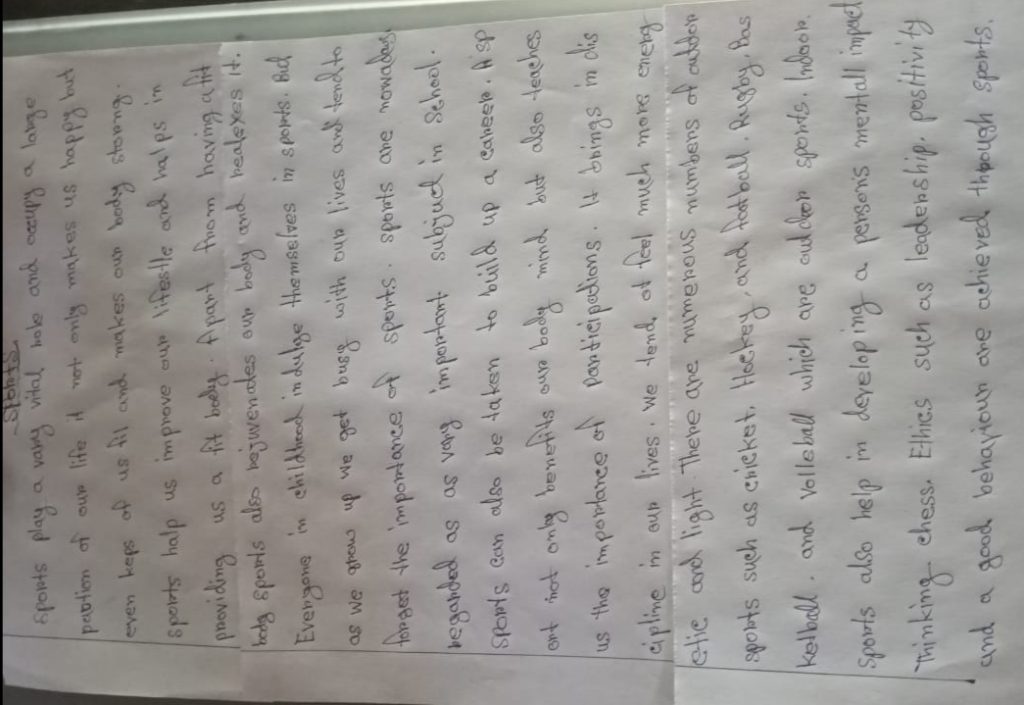 Sports
Sports play a vary vital hole and occupy a lange
pertion of our life it not only makes us happy but
even keps of us fil and makes our body storng.
sports halp us improve our lifeslle and halps in
providing us a fit body. Apart from having a fit
body sports also rejuvenates our body and realexes it.
Everyone in childhood indulge themselves in sports. But
as we grow up we get busy with our lives and tend to
forget the importance of sports. sports are nowadays
regarded as vary important subject in school.
Sports can also be taken to build up a career. A sp
ort not only benefits our body mind but also teaches
us the importance of participations. It brings in dis
cipline in our lives. we tend of feel much more energ
etic and light. There are numerous numbers of outdoor
sports such as cricket. Hockey, and football. Rugby. Bas
ketball. and volleball which are outdoor sports. Indoor.
Sports also help in developing a persons mental impact
Thinking chess. Ethics such as leadership, positivity
and a good behaviour are achieved through sports.